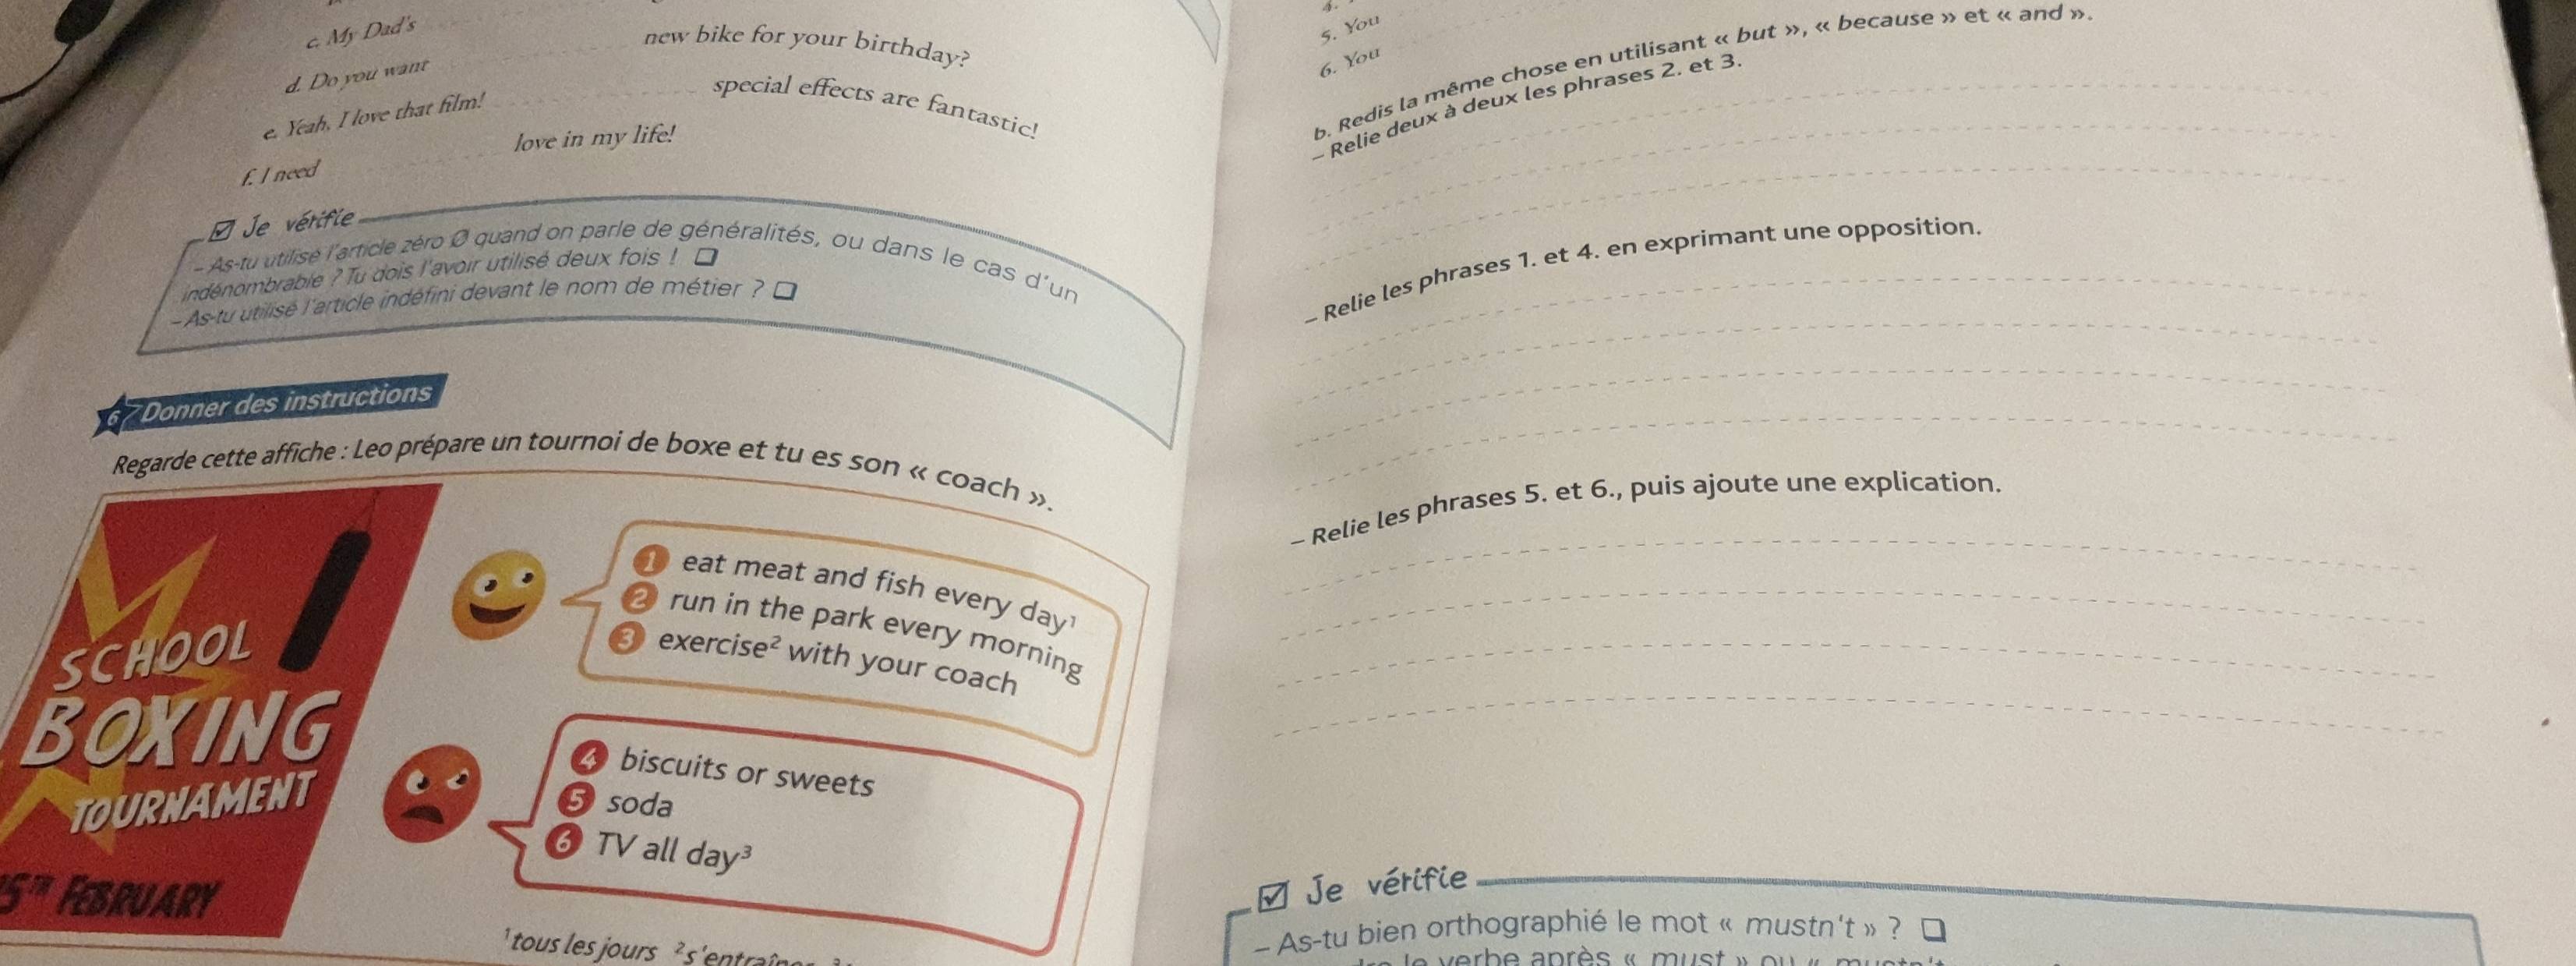 c. My Dad's
d. Do you want new bike for your birthday?
e. Yeah, I love that film! special effects are fantastic!
f. I need love in my life!
Je vérifie
- As-tu utilisé l'article zéro Ø quand on parle de généralités, ou dans le cas d'un
indénombrable ? Tu dois l'avoir utilisé deux fois !
- As-tu utilisé l'article indéfini devant le nom de métier ?
6 Donner des instructions
Regarde cette affiche : Leo prépare un tournoi de boxe et tu es son « coach ».
SCHOOL
BOXING
TOURNAMENT
5TH FEBRUARY
1 eat meat and fish every day¹
2 run in the park every morning
3 exercise² with your coach
4 biscuits or sweets
5 soda
6 TV all day³
¹tous les jours ²s'entraîner
4.
5. You
6. You
b. Redis la même chose en utilisant « but », « because » et « and ».
– Relie deux à deux les phrases 2. et 3.
– Relie les phrases 1. et 4. en exprimant une opposition.
– Relie les phrases 5. et 6., puis ajoute une explication.
Je vérifie
– As-tu bien orthographié le mot « mustn't » ?
le verbe après « must » ou « mustn't